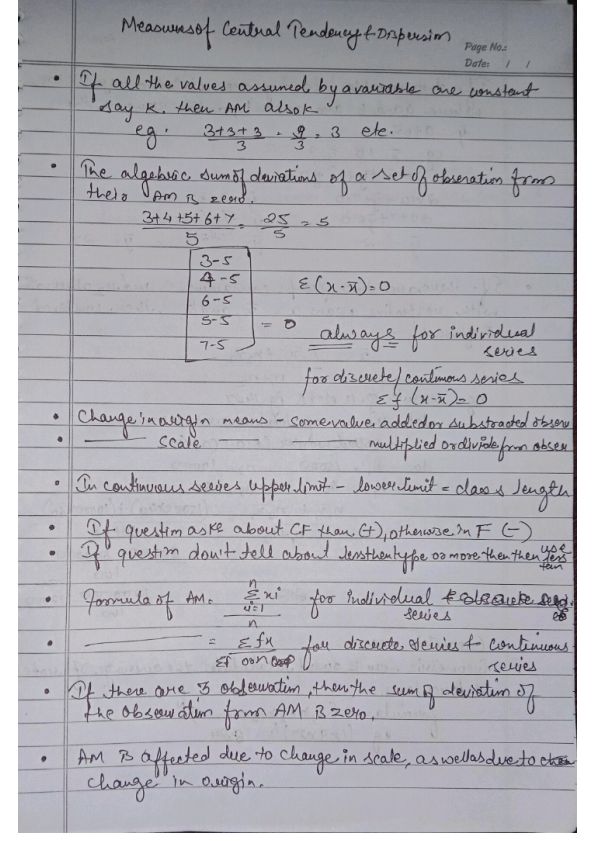 Measures of Central Tendency & Dispersion
Page No.:
Date: / /
• If all the values assumed by a variable are constant
say K. then AM also K
eg. 3+3+3/3 = 9/3 = 3 etc.
• The algebric sum of deviations of a set of obseration from
their AM is zero.
3+4+5+6+7/5 = 25/5 = 5
3-5
4-5
6-5
5-5
7-5
= 0
Σ(x-x̄)=0
always for individual
series
for discrete/continuous series
Σf(x-x̄)=0
• Change in origin means - some value added or substracted obserr
• —— scale —— —— multiplied or divide from obser
• In continuous series upper limit - lower limit = class length
• If question asks about CF than (+), otherwise in F (-)
• If question don't tell about lessthen type or more then then use less than
• Formula of AM = Σxi/n for individual
n
i=1
series
• —— = Σfx/Σf for discrete series & continuous
series
• If there are 3 observation, then the sum of deviation of
the observation from AM is zero.
• AM is affected due to change in scale, as well as due to
change in origin.